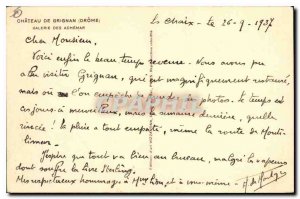 CHÂTEAU DE GRIGNAN (DRÔME)
GALERIE DES ADHÉMAR
Le Chaix - le 26-9-1937
Cher Monsieur,
Voici enfin le beau temps revenu. Nous avons pu
aller visiter Grignan, qui est magnifiquement restauré,
mais où l'on empêche de prendre des photos. Le temps est
toujours à merveille, mais la semaine dernière, quelle
rincée! la pluie a tout emporté, même la route de Monté-
limar.
J'espère que tout va bien au bureau, malgré la vapeur
dont souffre la livre Sterling.
Mes respectueux hommages à Mme
et à vous-même -